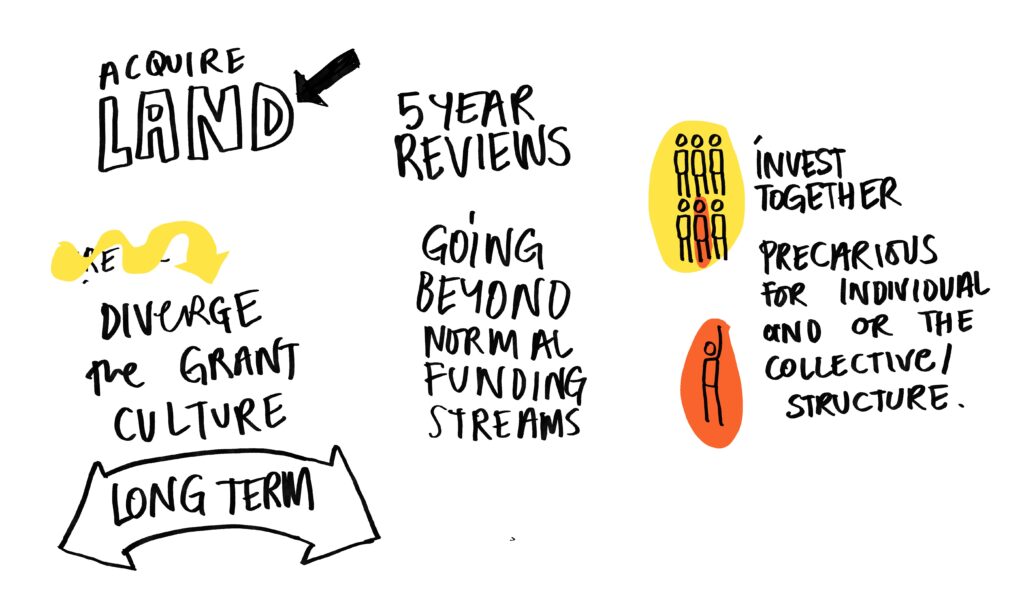 ACQUIRE
LAND
RE
DIVERGE
the GRANT
CULTURE
LONG TERM
5 YEAR
REVIEWS
GOING
BEYOND
NORMAL
FUNDING
STREAMS
INVEST
TOGETHER
PRECARIOUS
FOR INDIVIDUAL
AND OR THE
COLLECTIVE/
STRUCTURE.